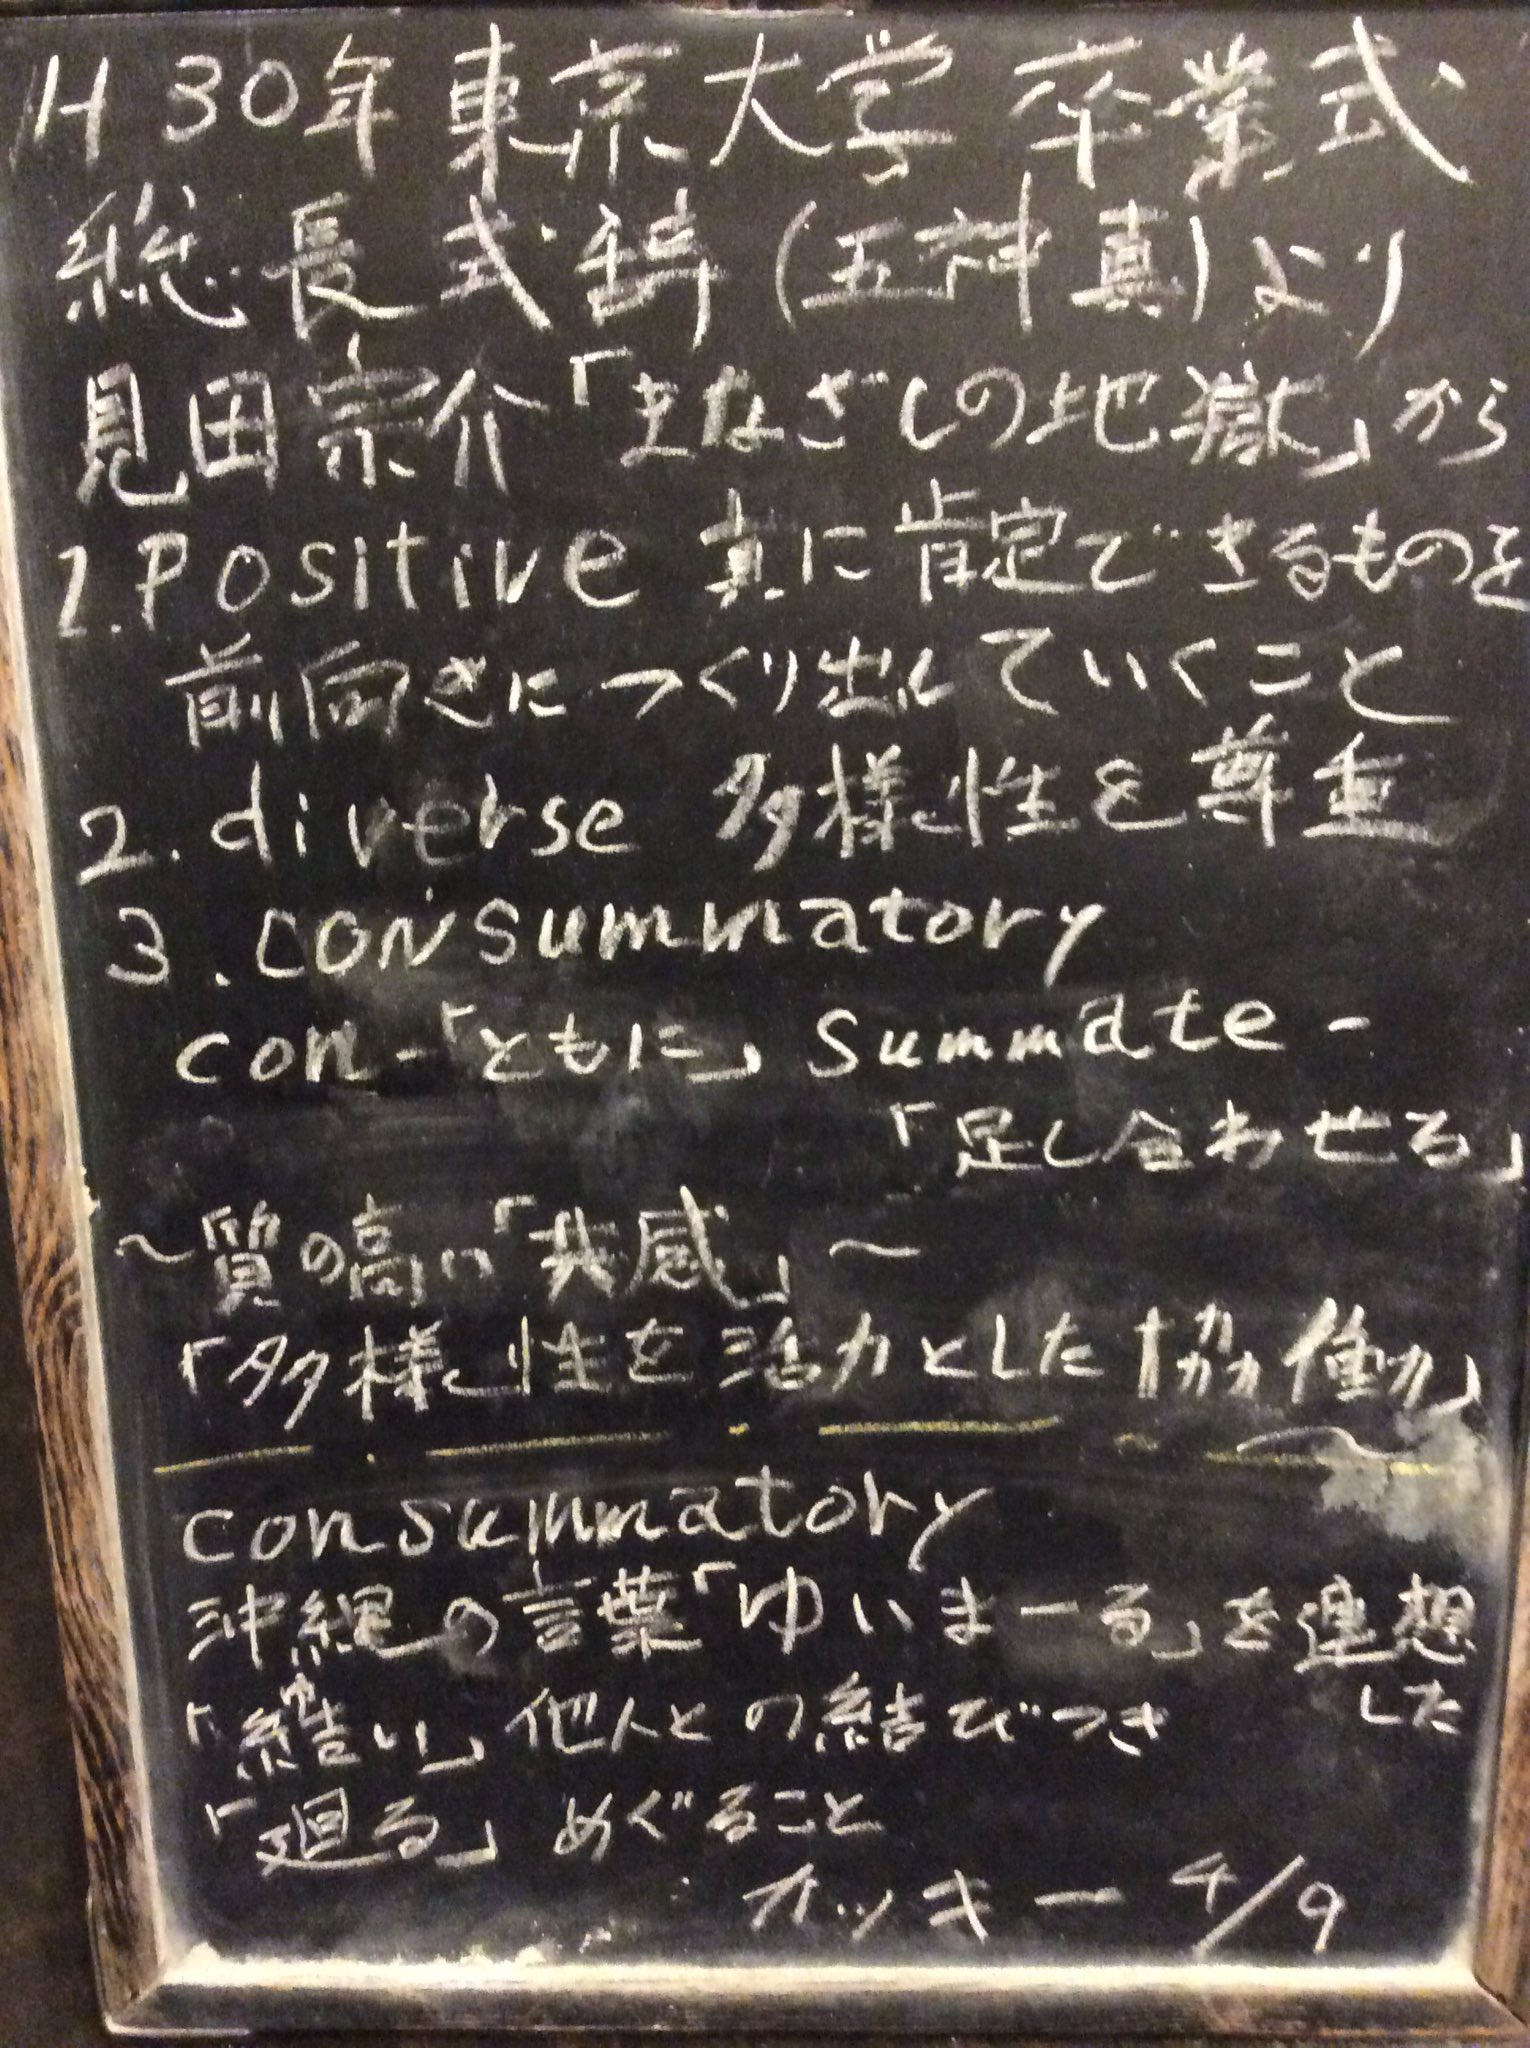 H30年 東京大学 卒業式
総長式辞(五神真)より
見田宗介「まなざしの地獄」から
1. Positive 真に肯定できるものを
前向きにつくり出していくこと
2. diverse 多様性を尊重
3. consummatory
con-「ともに」 summate-
「足し合わせる」
〜質の高い「共感」〜
「多様性を活力とした協働」
consummatory
沖縄の言葉「ゆいまーる」を連想
した
「結い」他人との結びつき
ゆ
「廻る」めぐること
カッキー 4/9